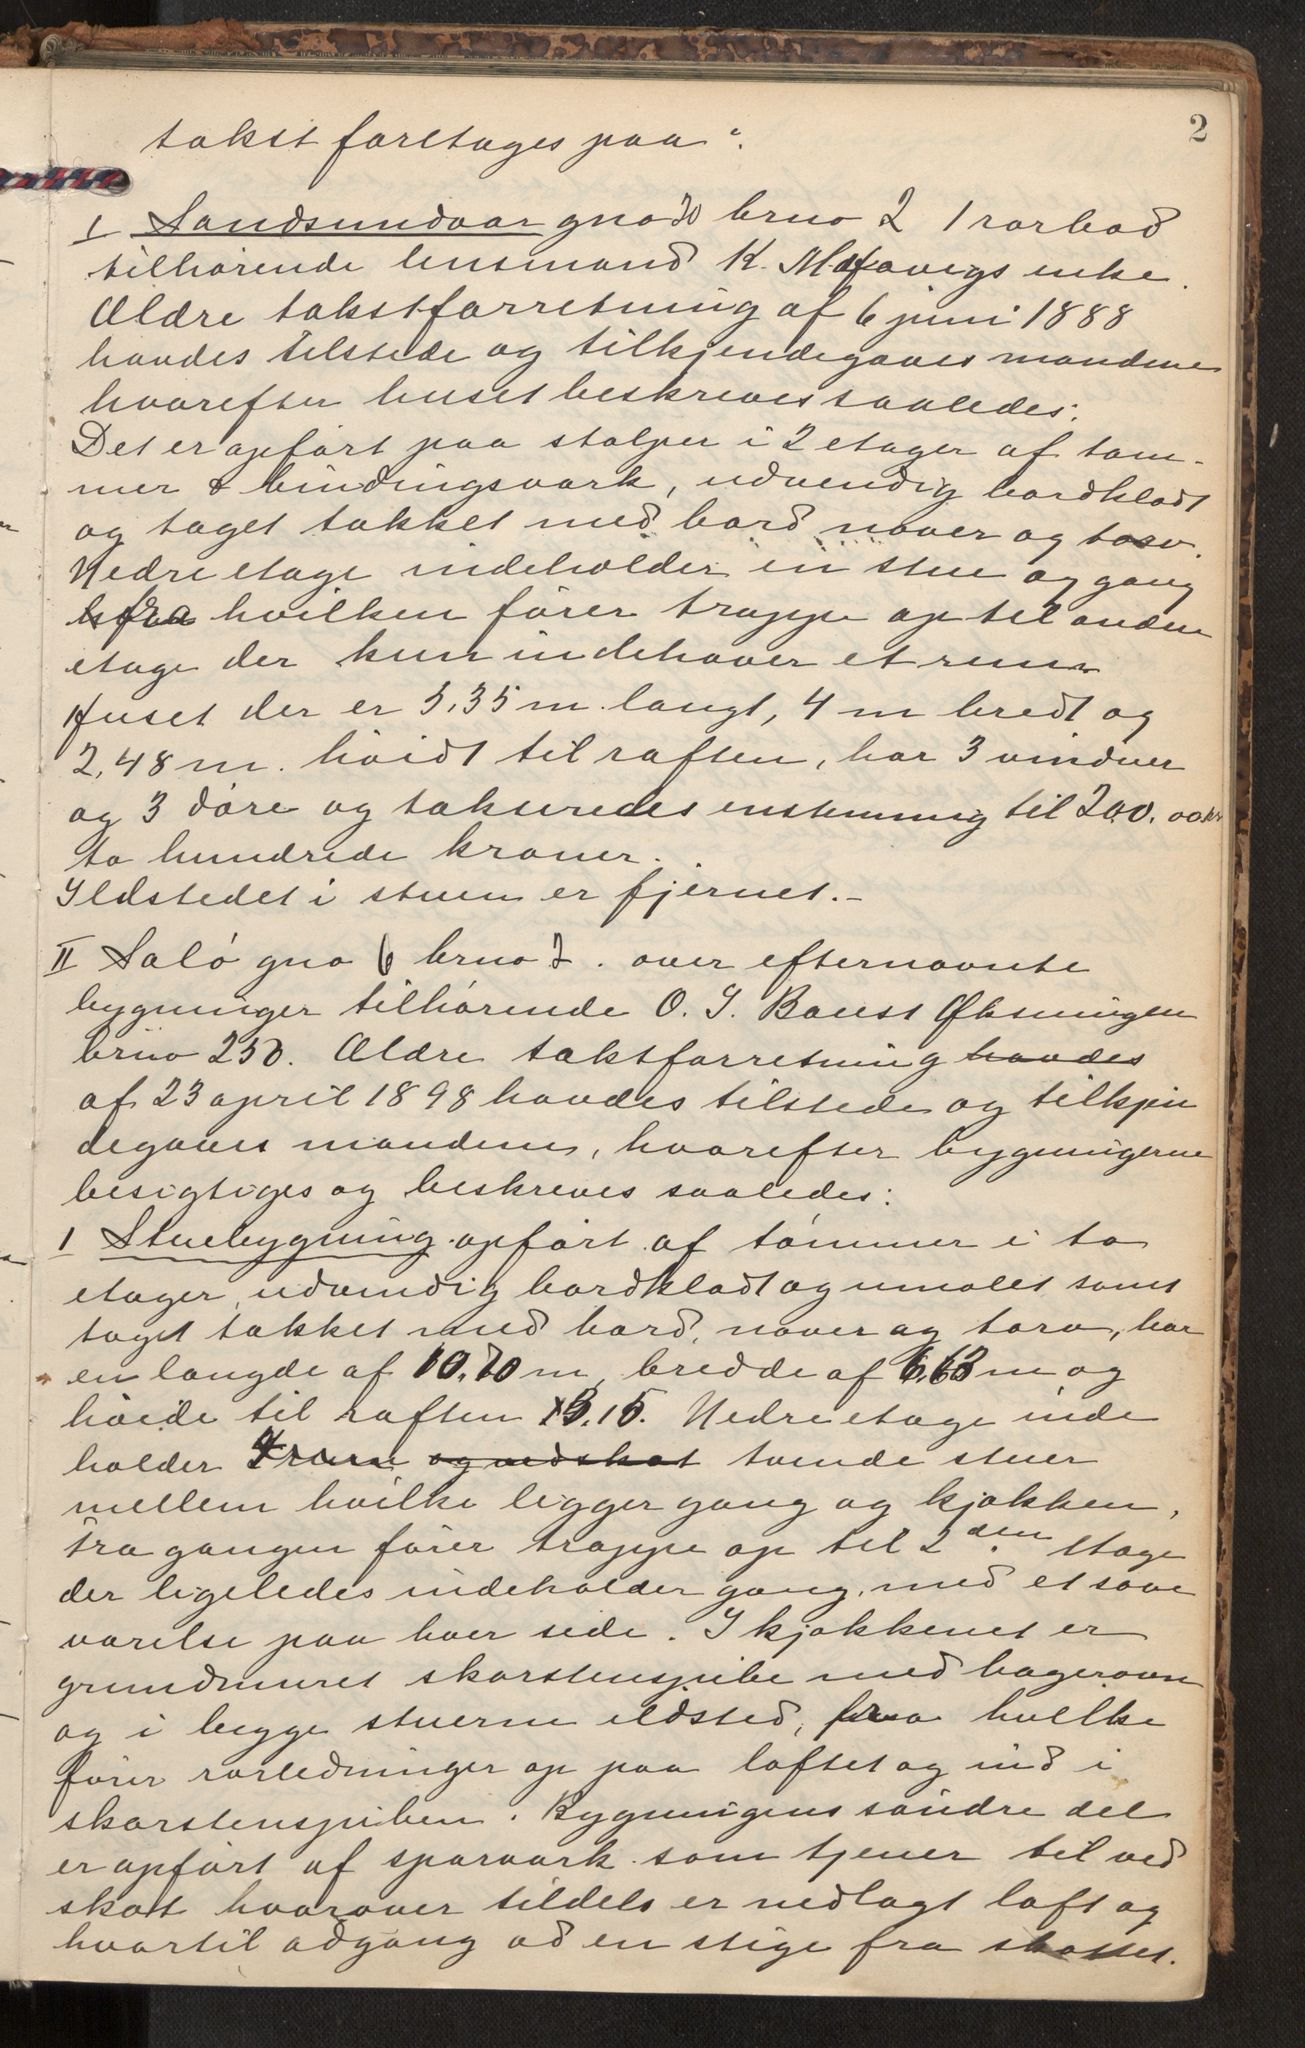 2
takst foretages paa".
I Sandsundvær gno 70 brno 2 1 rorbod
tilhørende lensmand K. Mafavegs enke.
Ældre takstforretning af 6 juni 1888
havdes tilstede og tilkjendegaves mændene
hvorefter huset beskreves saaledes:
Det er opført paa stolper i 2 etager af tøm-
mer & bindingsværk, udvendig bordklædt
og taget tækket med bord næver og torv.
Nedre etage indeholder en stue og gang
fra hvilken fører trappe op til anden
etage der kun indehaver et rum
Huset der er 5,35 m. langt, 4 m bredt og
2,48 m. høidt til raften, har 3 vinduer
og 3 døre og takseredes enstemmig til 200.00 kr
to hundrede kroner.
Ildstedet i stuen er fjernet.-
II Salø gno 6 brno 2. over efternævnte
bygninger tilhørende O. J. Bauss Øksningen
brno 250. Ældre takstforretning havdes
af 23 april 1898 havdes tilstede og tilkjen
degaves mændene, hvorefter bygningerne
besigtiges og beskreves saaledes:
1 Stuebygning opført af tømmer i to
etager, udvendig bordklædt og umalet samt
taget tækket med bord, næver og torv, har
en længde af 10.70 m, bredde af 6,63 m og
høide til raften 3.15. Nedre etage inde
holder 4 rum og vedskot tvende stuer
mellem hvilke ligger gang og kjøkken,
fra gangen fører trappe op til 2den etage
der ligeledes indeholder gang med et sove
værelse paa hver side. I kjøkkenet er
grundmuret skorstenspibe med bagerovn
og i begge stuerne ildsted, fra hvilke
fører rørledninger op paa loftet og ind i
skorstenspiben. Bygningens søndre del
er opført af sparværk som tjener til ved
skott hvorover tildels er nedlagt loft og
hvortil adgang ad en stige fra skottet.